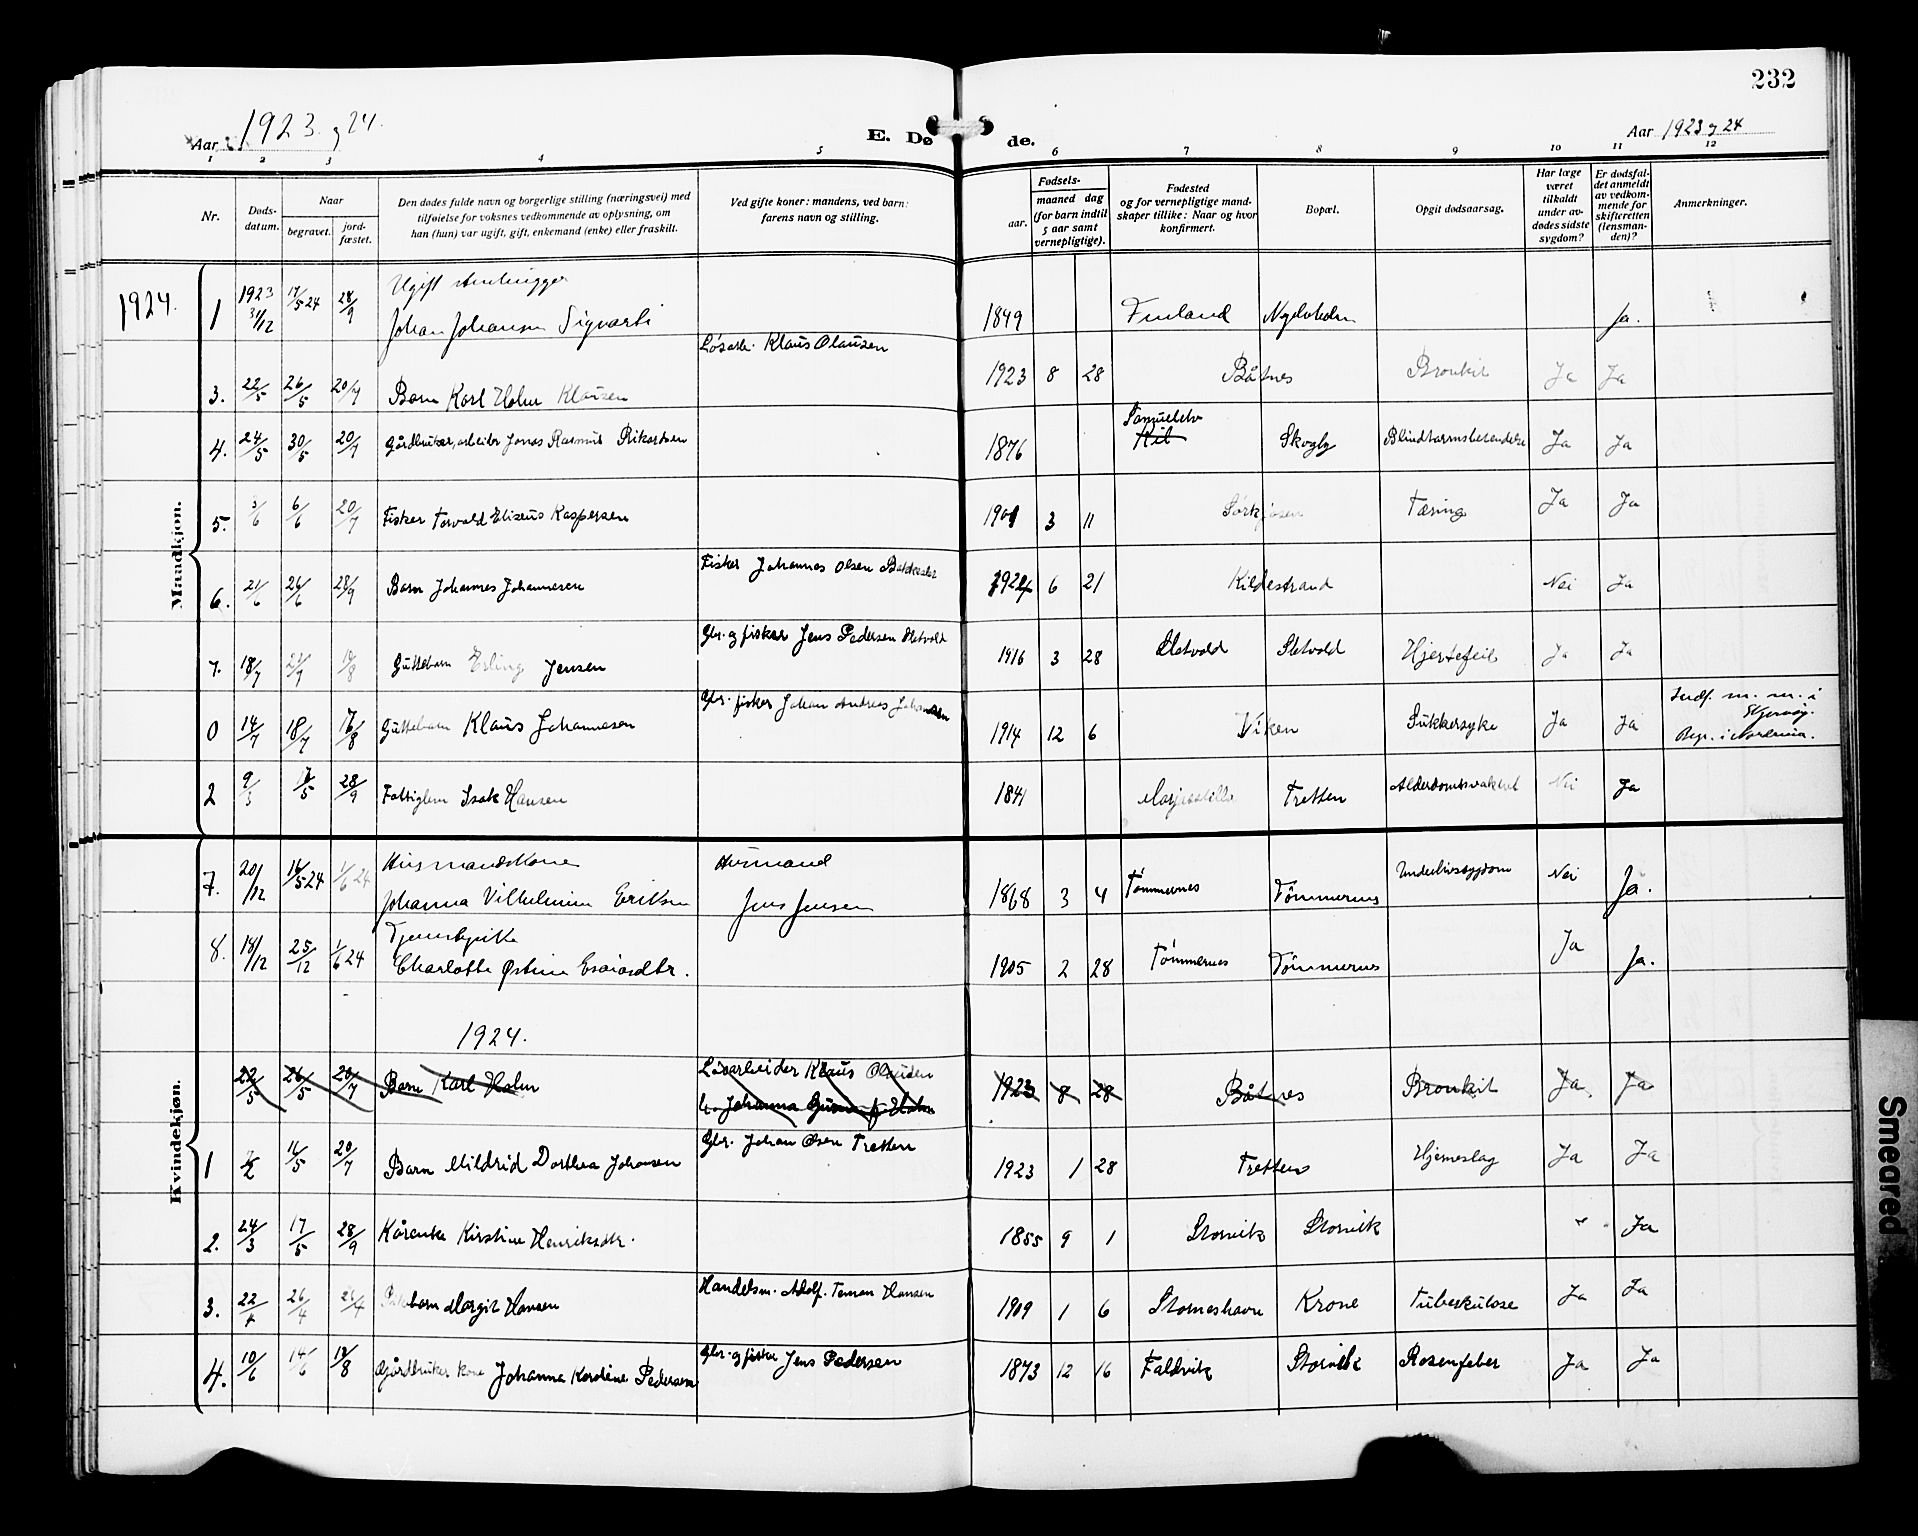 232
Aar 1923 og 24.
E. Dø de.
Aar 1923 og 24
1 2 3 4 5 6 7 8 9 10 11 12
Nr.
Døds-
datum.
Naar
begravet.
jord-
fæstet.
Den dødes fulde navn og borgerlige stilling (næringsvei) med
tilføielse for voksnes vedkommende av oplysning, om
han (hun) var ugift, gift, enkemand (enke) eller fraskilt.
Ved gifte koner: mandens, ved barn:
farens navn og stilling.
Fødsels-
aar.
maaned dag
(for barn indtil
5 aar samt
vernepligtige).
Fødested
og for vernepligtige mand-
skaper tillike: Naar og hvor
konfirmert.
Bopæl.
Opgit dødsaarsag.
Har læge
været
tilkaldt
under av-
dødes sidste
sygdom?
Er dødsfal-
det anmeldt
av vedkom-
mende for
skifteretten
(lensman-
den)?
Anmerkninger.
Mandkjøn.
1924.
1 1923 31/12 17/5 24 28/9 Ugift
Johan Johansen 1849 Finland Ja.
3. 22/5 26/5 20/7 Barn Karl Holm Klausen Løsarb. Klaus Olausen 1923 8 28 Båtnes Bronkit Ja Ja
4. 24/5 30/5 20/7 Gårdbruker, arbeider Jonas Rasmus Rikardsen 1876 Samuelelv Kil Skogly Blindtarmsbetendelse Ja Ja
5. 3/6 6/6 20/7 Fisker Torvald Eliseus Kaspersen 1901 3 11 Sørkjosen Tæring Ja Ja
6. 21/6 26/6 28/9 Barn Johannes Johannesen Fisker Johannes Olsen 1924 6 21 Kildestrand Nei Ja
7. 18/7 18/8 Guttebarn Erling Jensen Gbr. og fisker Jens Pedersen Sletvold 1916 3 28 Sletvold Sletvold Hjertefeil Ja Ja
0 14/7 18/7 Guttebarn Klaus Johannesen Gbr. fisker Johan Andreas Johansen 1914 12 6 Viken Sukkersyke Ja Ja Indf. m. nr. i
Skjervøy.
Begr. i
2 9/3 28/9 Fattiglem Isak Hansen 1841 Tretten Nei Ja
Kvindekjøn.
7. 20/12 16/5 24 1/6 24 Husmandskone
Johanna Vilhelmine Eriksen Husmand
Jens Jensen 1868 3 4 Tømmernes Tømmernes Underlivssygdom Nei Ja.
8. 18/12 25/12 1/6 24 Tjenestepike
Charlotte Østine Esaiasdtr. 1905 2 28 Tømmernes Tømmernes Ja Ja.
1924.
22/5 26/5 20/7 Barn Karl Holm Løsarbeider Klaus Olausen 1923 8 28 Båtnes Bronkit Ja. Ja
1 16/5 20/7 Barn Mildrid Dorthea Johansen Gbr. Johan Olsen Tretten 1923 1 28 Tretten Hjerneslag Ja Ja
2. 24/3 17/5 28/9 Kårenke Kirstine Henriksdtr. 1855 9 1 Storvik Storvik Ja
3. 22/4 26/4 26/4 Pikebarn Margit Hansen Handelsm. Adolf Hansen 1909 1 6 Storneshavn Krone Tuberkulose Ja Ja
4. 10/6 14/6 19/8 Gårdbruker kone Johanna Karoline Pedersen Gbr. og fisker Jens Pedersen 1873 12 16 Faldvik Storvik Rosenfeber Ja Ja
Smeared